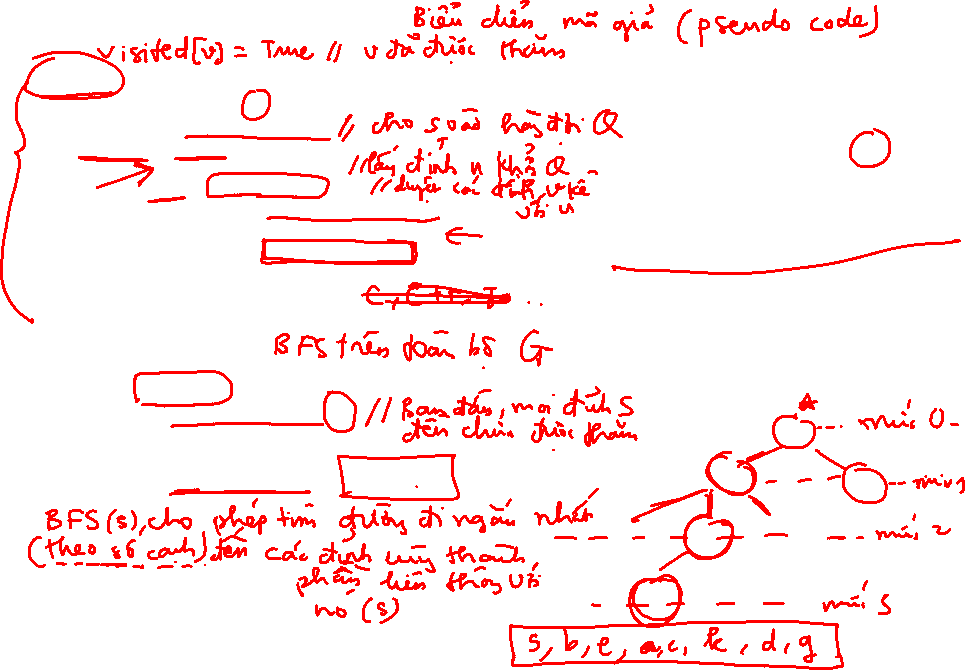 Biểu diễn mã giả (pseudo code)
visited[v] = True // v đã được thăm
// cho s vào hàng đợi Q
// lấy đỉnh u khỏi Q
// duyệt các đỉnh v kề
với u
C, C++, ..
BFS trên toàn bộ G
// Ban đầu, mọi đỉnh S
đều chưa được thăm
mức 0
mức 1
BFS(s), cho phép tìm đường đi ngắn nhất
mức 2
(theo số cạnh) đến các đỉnh cùng thành
phần liên thông với
nó (s)
mức
s, b, e, a, c, k, d, g